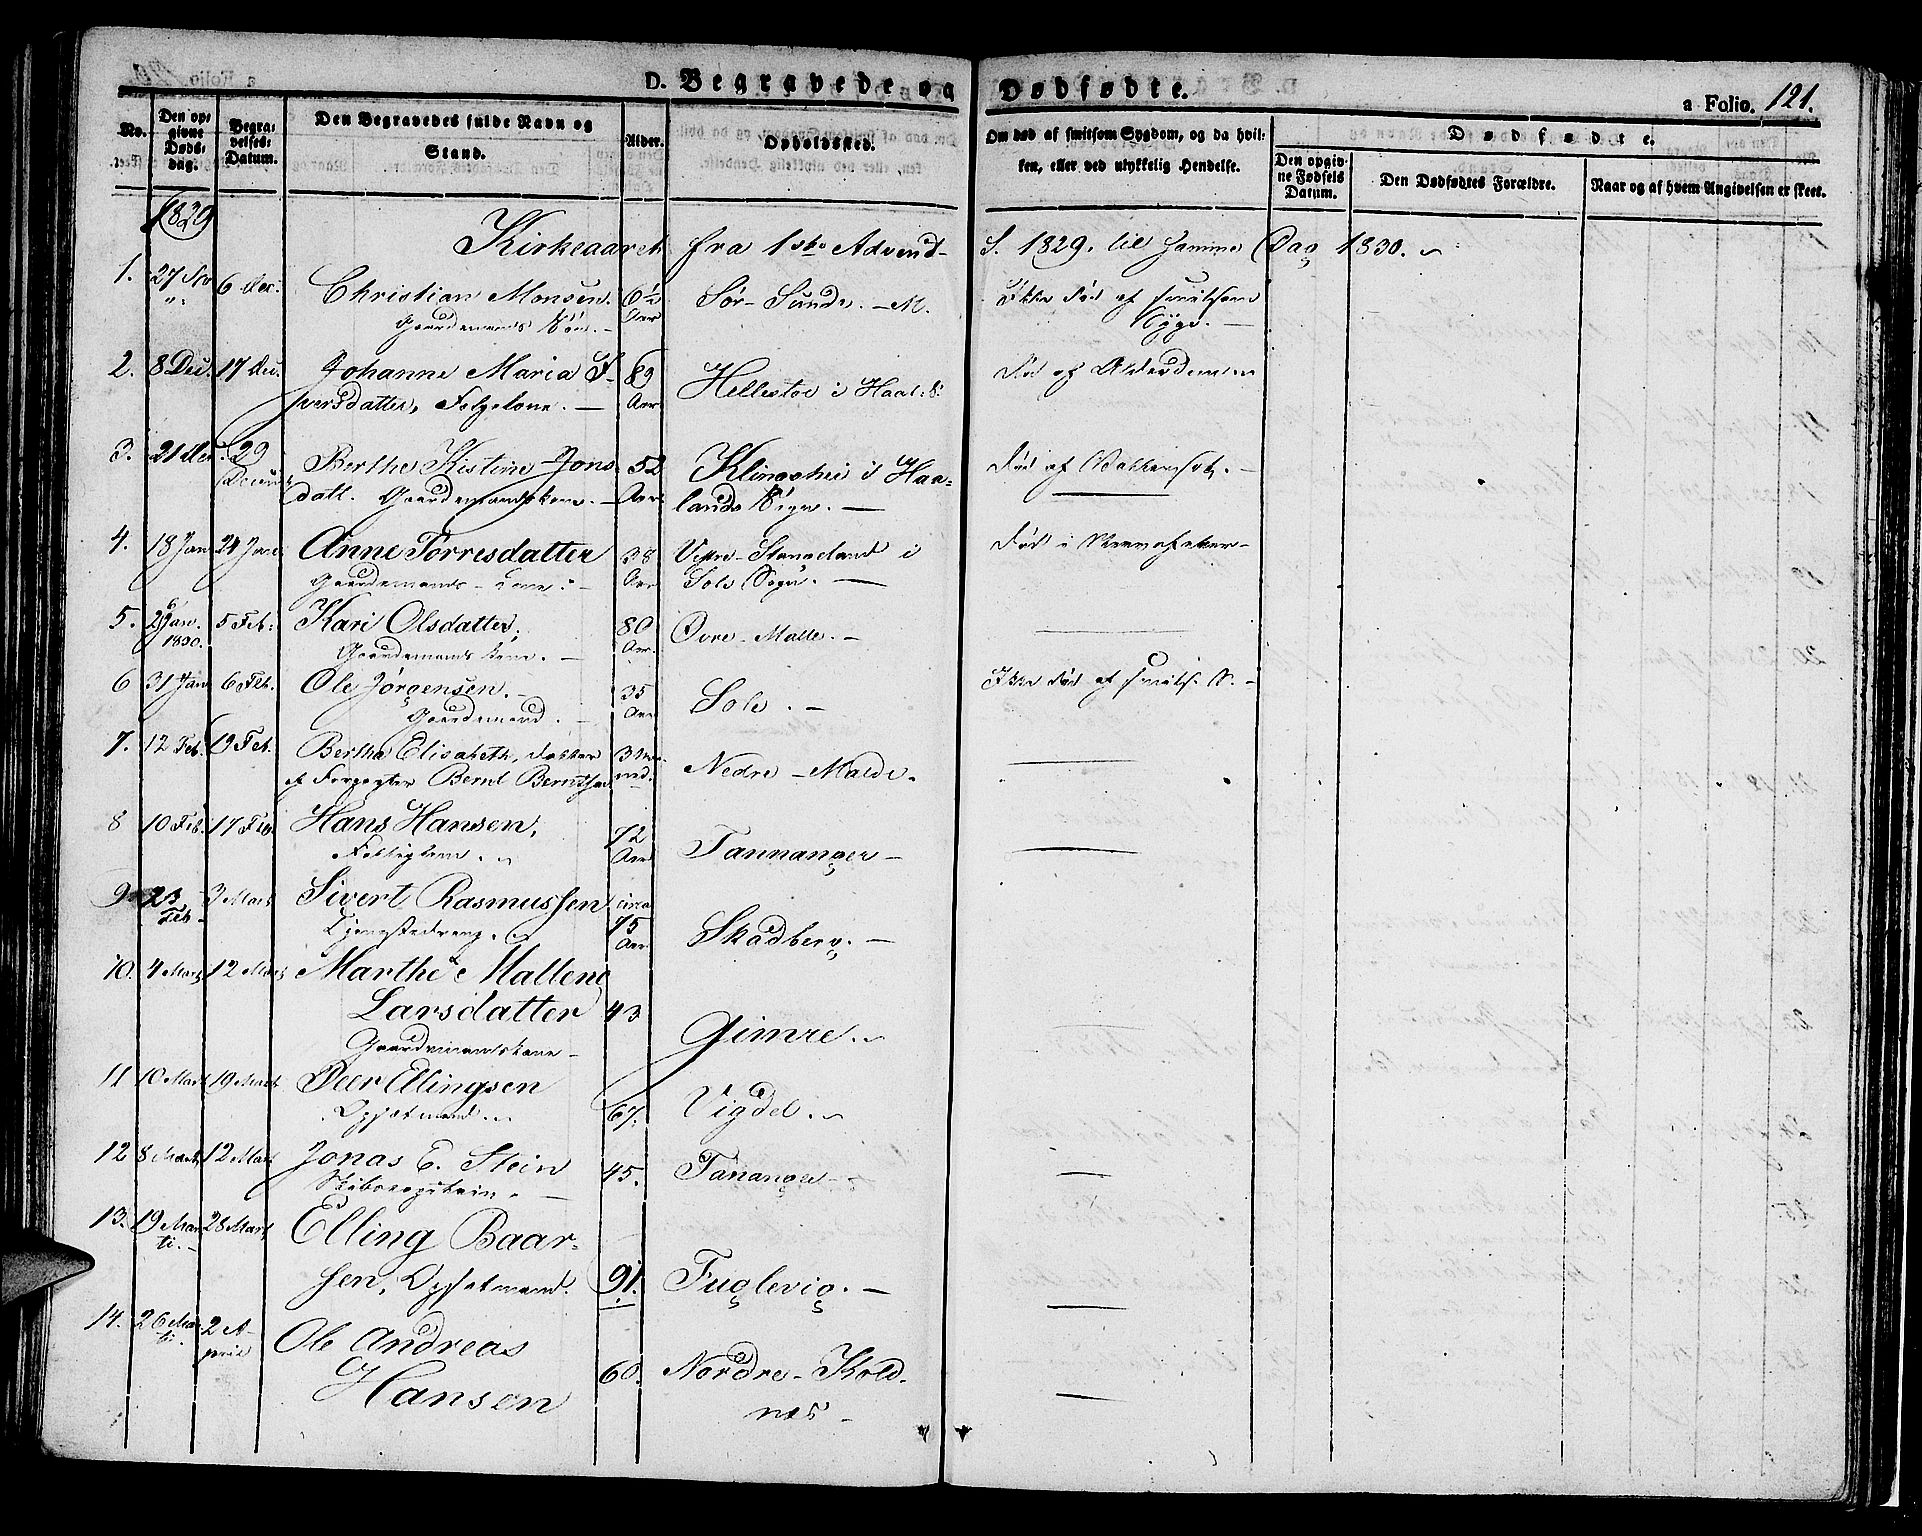 D. Begravede og Dødfødte.
a Folio. 121.
No.
Den opgivne Dødsdag.
Begravelses-Datum.
Den Begravedes fulde Navn og Stand.
Alder.
Opholdssted.
Om død af smitsom Sygdom, og da hvilken, eller ved ulykkelig Hendelse.
Dødfødte.
Den opgivne Fødsels Datum.
Den Dødfødtes Forældre.
Naar og af hvem Angivelsen er skeet.
1829
Kirkeaaret fra 1ste Advend- S. 1829. til samme Dag 1830.
1. 27 Nov 6 Dec: Christian Monsen. 6½ Sør-Sunde. - M. Ikke død af smitsom
Gaardemands Søn. - Aar Syge. -
2. 8 Dec. 17 Dec. Johanne Maria I- 89 Hellestøe i Haal: S: Død af Alderdom
versdatter, Følgekone. - Aar.
3. 21 Dec. 29 Berthe Kistine Jons 52 Klingshei i Haa- Død af Vattersot. -
Decemb datt. Gaardemandskone. - Aar lands Sogn. -
4. 18 Jan 24 Jan. Anne Torresdatter 38 Vestre-Stangeland i Død i
Gaardemands-kone: - Aar Sole Sogn. -
5. 26 Jan. 5 Feb: Kari Olsdatter, 80 Øvre-Malle. -
1830. Gaardemands kone. - Aar.
6 31 Jan 6 Feb. Ole Jørgensen. - 35 Sole. - Ikke død af smits: S. -
Gaardemand. - Aar
7. 12 Feb. 19 Feb. Bertha Elisabeth, Datter 3 Maa-
af Forpagter Bernt Berntsen ned. Nedre-Malde.
8 10 Feb. 17 Feb. Hans Hansen, 72 Tannanger -
Fattiglem. Aar
9 23 3 Marts Sivert Rasmussen circa
Feb - Tjenestedreng. 75 Skadberg. -
Aar
10. 4 Marts 12 Marts Marthe Mallene
Larsdatter 43 Gimre.
Gaardmandskone -
11 10 Marts 19 Marts Peer Ellingsen
Opsetmand. 67. Vigdel.
12 8 Marts 12 Marts Jonas E. Stein 45. Tananger -
Skibscapitain. -
13. 19 Mar- 28 Marts Elling Baar-
ti. - sen, Opsetmand. 91. Fuglevig. -
14. 26 Mar- 2 A- Ole Andreas
ti. pril Hansen 60. Nordre-Kold-
næs -